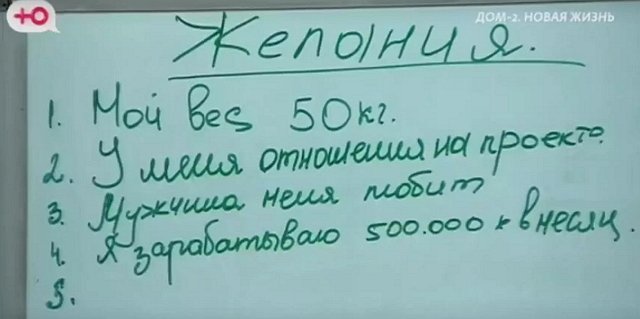 Ю
ДОМ-2. НОВАЯ ЖИЗНЬ
Желания.
1. Мой вес 50кг.
2. У меня отношения на проекте.
3. Мужчина меня любит
4. Я зарабатываю 500.000 к в месяц.
5.